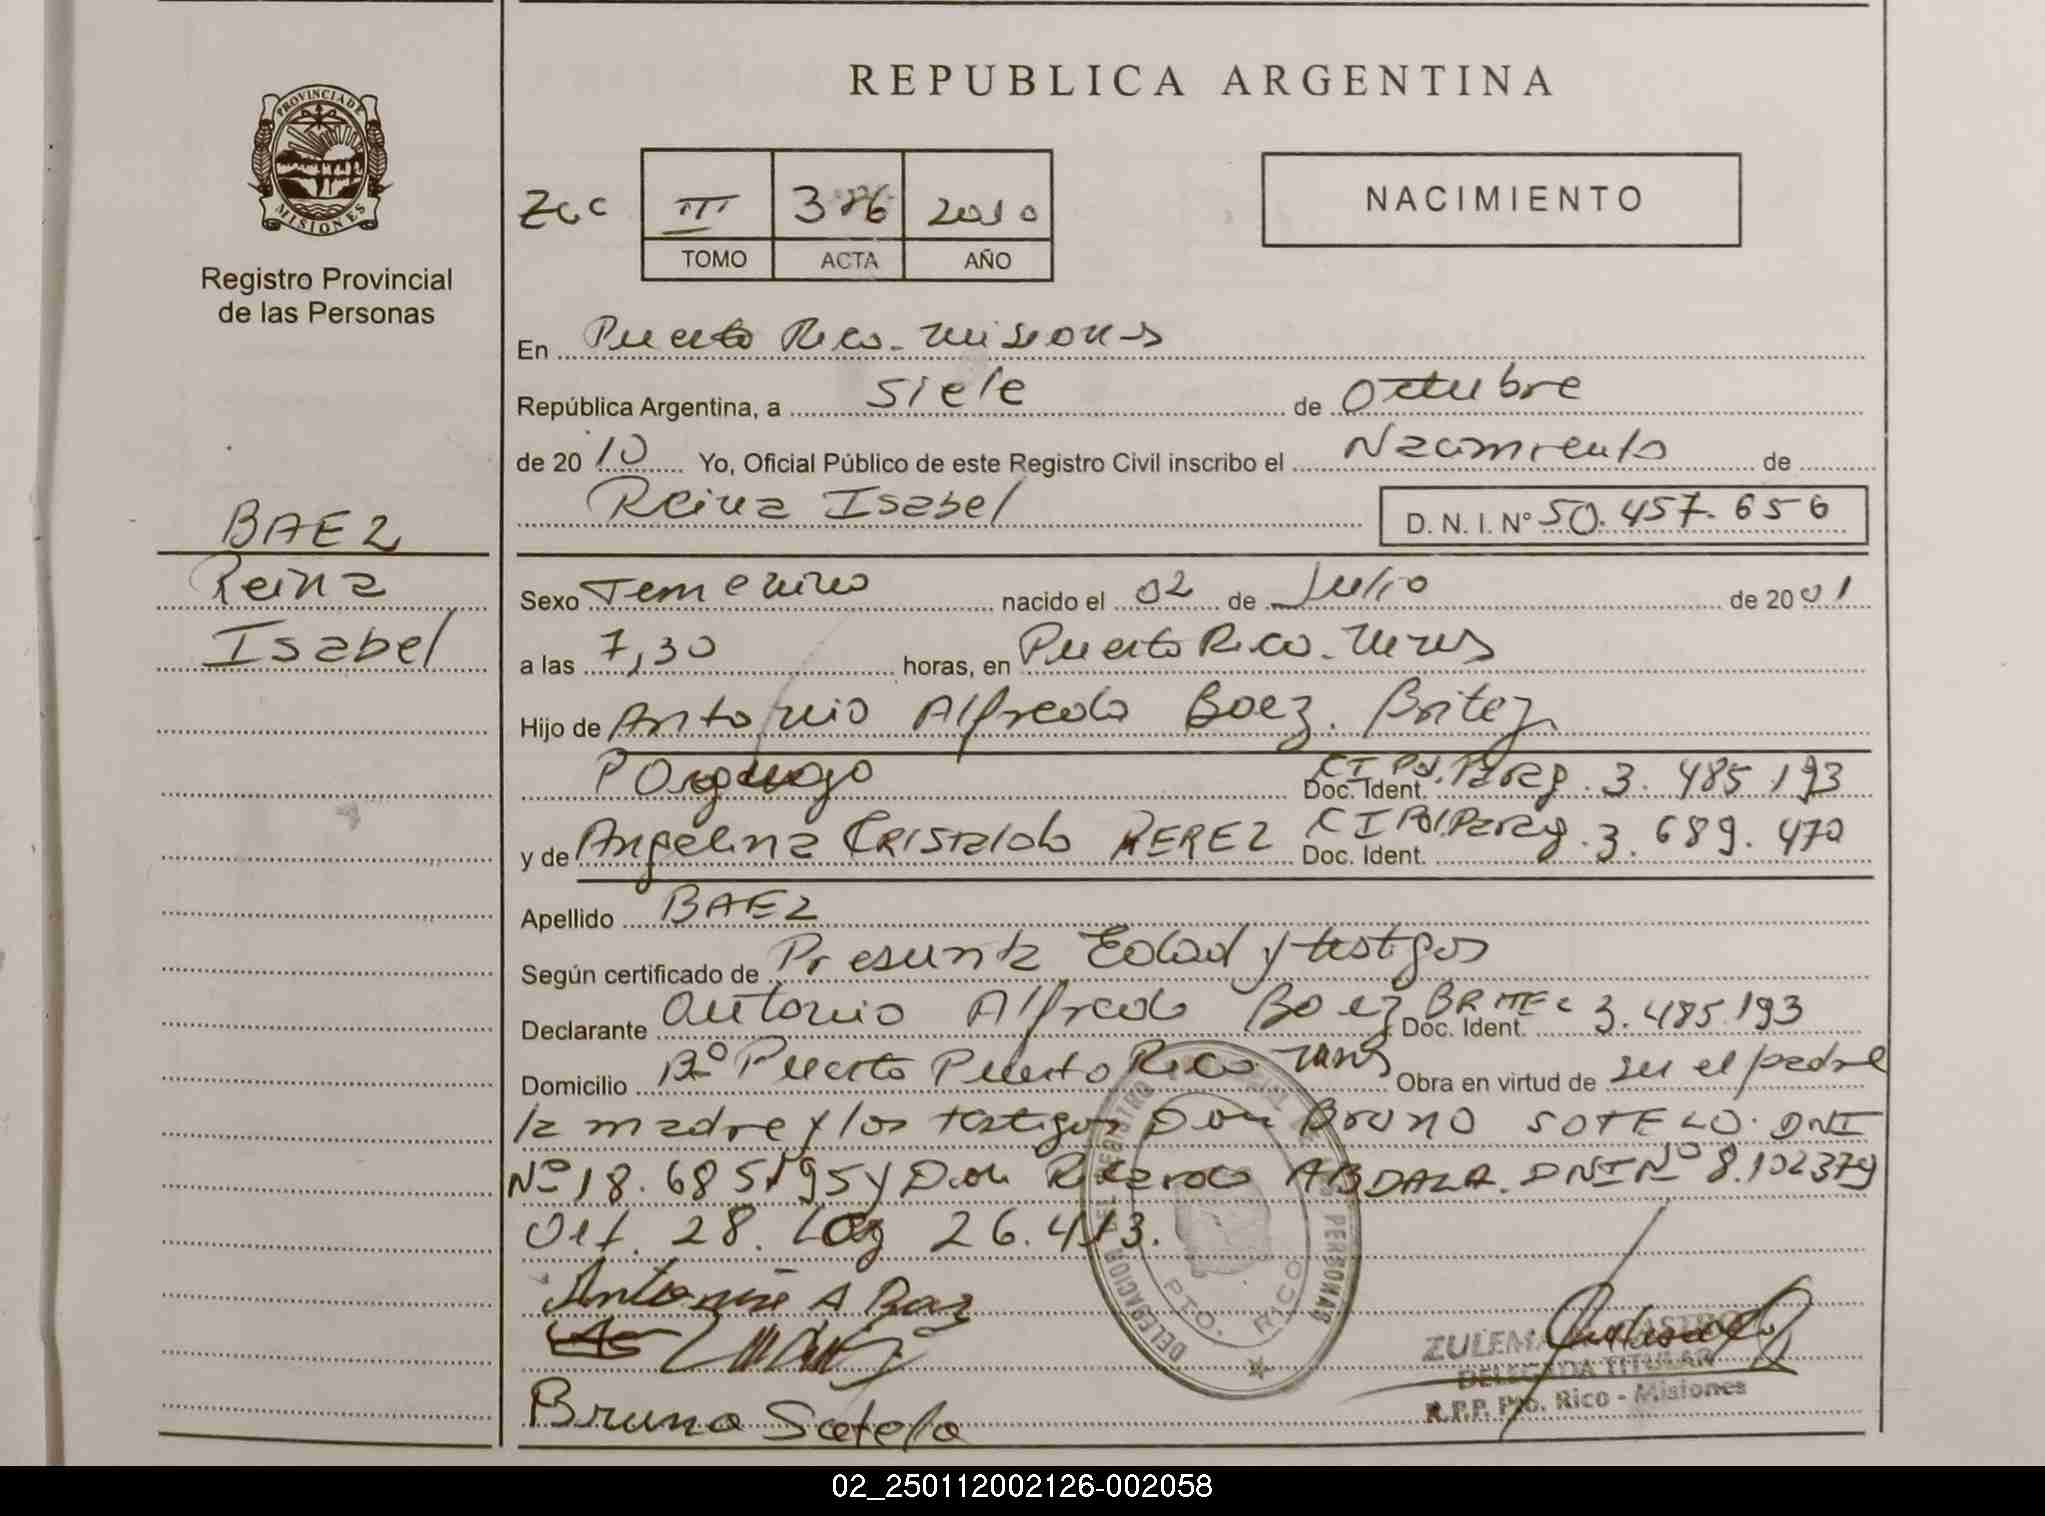 REPUBLICA ARGENTINA
PROVINCIA DE
MISIONES
Registro Provincial
de las Personas
III 2010
TOMO ACTA AÑO
NACIMIENTO
En Puerto Rico - Misiones
República Argentina, a siete de Octubre
de 20 10 Yo, Oficial Público de este Registro Civil inscribo el Nacimiento de
Reina Isabel D. N. I. N° 50.457.656
BAEZ
Reina
Isabel
Sexo Femenino nacido el 02 de Julio de 20 01
a las 7,30 horas, en Puerto Rico - Mnes
Hijo de Antonio Alfredo Baez Britez
Doc. Ident. CI Pol. Parag. 3.485.193
y de Angelina Cristaldo PEREZ Doc. Ident. CI Pol Parag. 3.689.470
Apellido BAEZ
Según certificado de Presunta Edad y testigos
Declarante Antonio Alfredo Baez BRITEZ Doc. Ident. 3.485.193
Domicilio Bº Puerto Puerto Rico Mnes Obra en virtud de ser el padre
la madre y los testigos Don Bruno SOTELO. DNI
Nº 18.685.195 y Don Ricardo ABDALA. DNI Nº 8.102379
Art. 28. Ley 26.413.
Antonio A Baez
Bruno Sotelo
DELEGACION DEL REGISTRO PERSONAS
PTO. RICO
ZULEMA CASTRO
DELEGADA TITULAR
R.P.P. Pto. Rico - Misiones
02_250112002126-002058